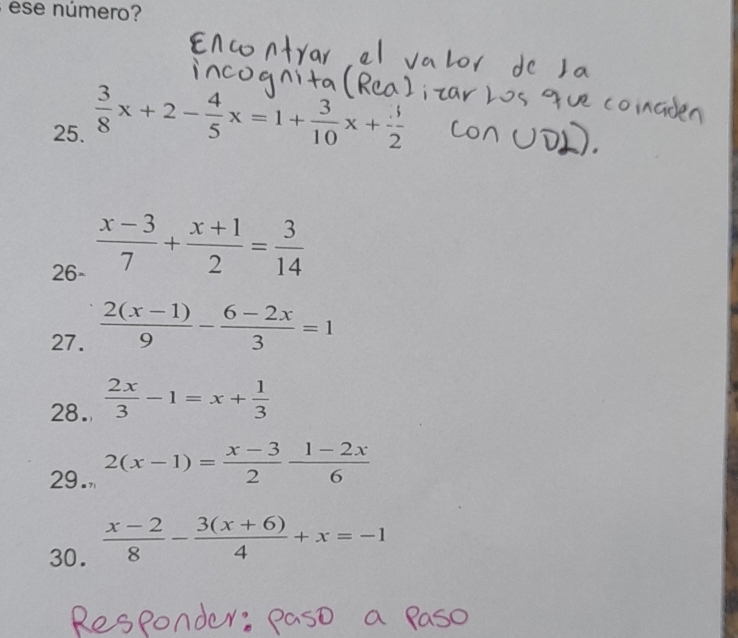 ese número?
Encontrar el valor de la
incognita (Realizar los que coinciden
con UDL).
25. 3/8 x + 2 - 4/5 x = 1 + 3/10 x + /2
26- (x - 3)/7 + (x + 1)/2 = 3/14
27. 2(x - 1)/9 - (6 - 2x)/3 = 1
28. 2x/3 - 1 = x + 1/3
29. 2(x - 1) = (x - 3)/2 - (1 - 2x)/6
30. (x - 2)/8 - 3(x + 6)/4 + x = -1
Responder: paso a paso